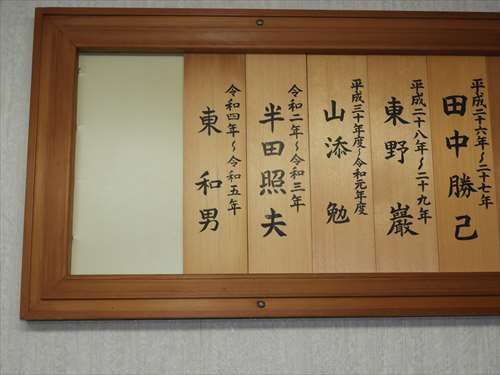 平成二十六年～二十七年
田中勝己
平成二十八年～二十九年
東野巌
平成三十年度～令和元年度
山添勉
令和二年～令和三年
半田照夫
令和四年～令和五年
東和男